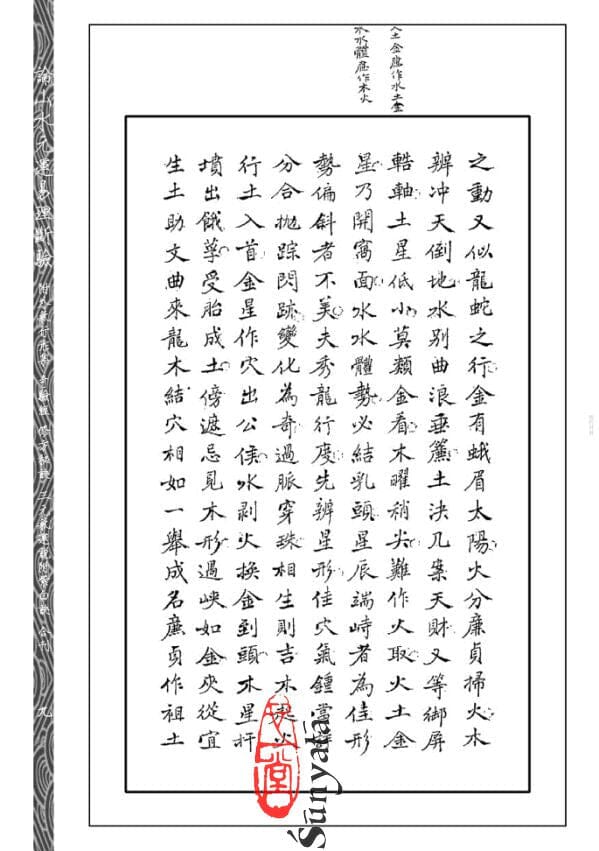 土金應作水土金
水體應作木火
之動又似龍蛇之行金有蛾眉太陽火分廉貞掃火木
辨冲天倒地水別曲浪垂簾土決几案天財又等御屏
軸土星低小莫類金看木曜稍尖難作火取火土金
星乃開窩面水水體勢必結乳頭星辰端峙者為佳形
勢偏斜者不美夫秀龍行度先辨星形佳穴氣鍾當
分合拋踪閃跡變化為奇過脈穿珠相生則吉木火
行土入首金星作穴出公侯水剥火換金到頭木星杆
墳出餓莩受胎成土傍遮忌見木形過峽如金夾從宜
生土助文曲來龍木結穴相如一舉成名廉貞作祖土
論山水九運易理斷驗
合刊
九
堂
Śūnyatā